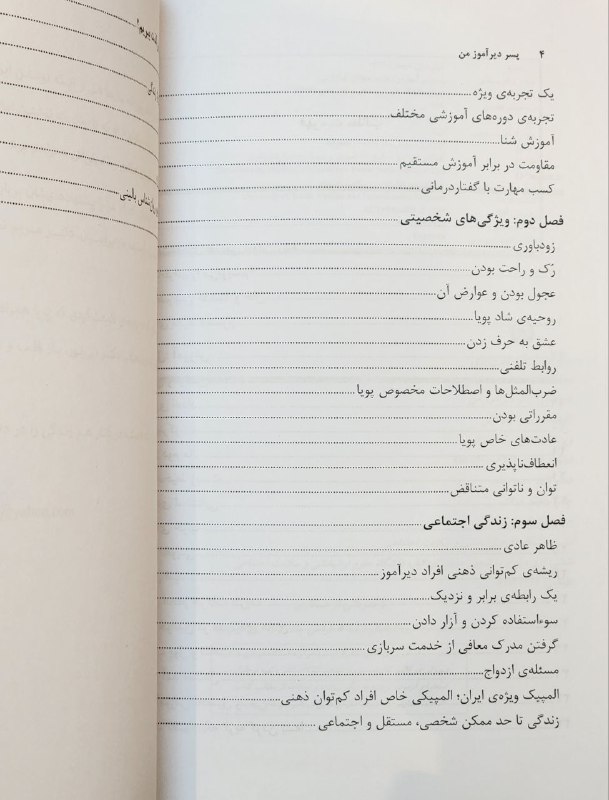 ۴ پسر دیرآموز من
یک تجربه‌ی ویژه
تجربه‌ی دوره‌های آموزشی مختلف
آموزش شنا
مقاومت در برابر آموزش مستقیم
کسب مهارت با گفتاردرمانی
فصل دوم: ویژگی‌های شخصیتی
زودباوری
رُک و راحت بودن
عجول بودن و عوارض آن
روحیه‌ی شاد پویا
عشق به حرف زدن
روابط تلفنی
ضرب‌المثل‌ها و اصطلاحات مخصوص پویا
مقرراتی بودن
عادت‌های خاص پویا
انعطاف‌ناپذیری
توان و ناتوانی متناقض
فصل سوم: زندگی اجتماعی
ظاهر عادی
ریشه‌ی کم‌توانی ذهنی افراد دیرآموز
یک رابطه‌ی برابر و نزدیک
سوءاستفاده کردن و آزار دادن
گرفتن مدرک معافی از خدمت سربازی
مسئله‌ی ازدواج
المپیک ویژه‌ی ایران؛ المپیکی خاص افراد کم‌توان ذهنی
زندگی تا حد ممکن شخصی، مستقل و اجتماعی